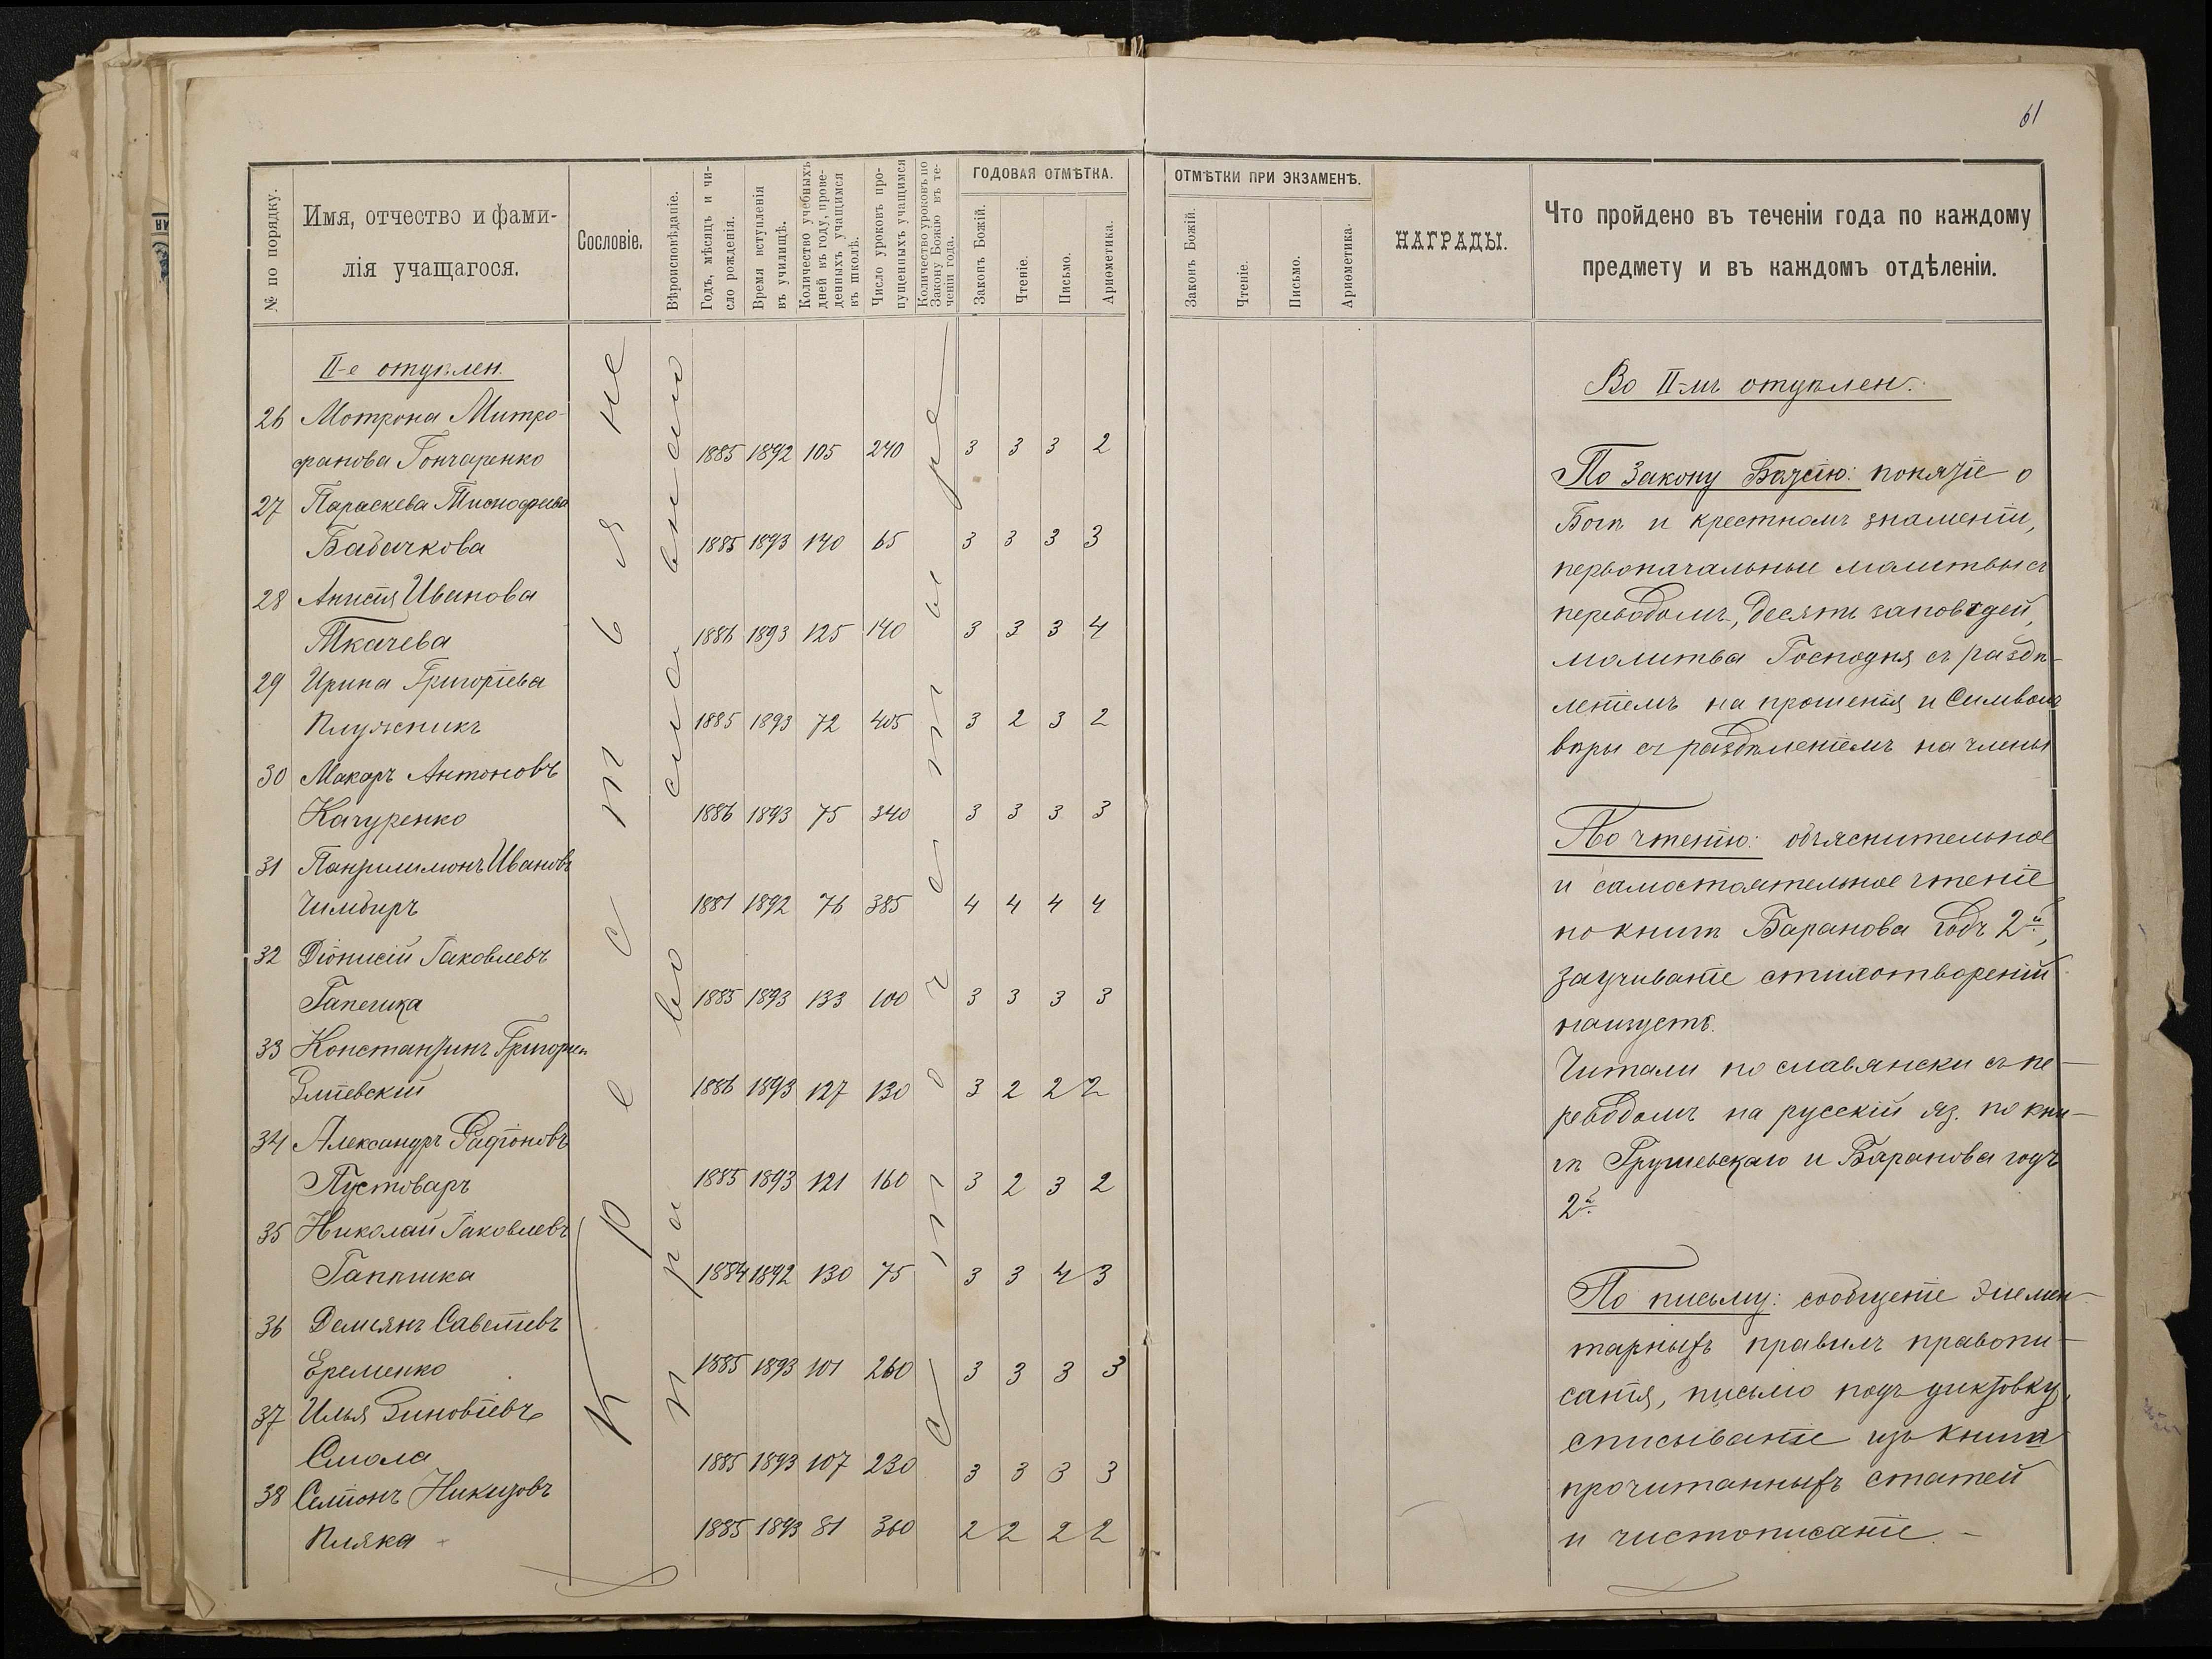 61
№ по порядку.
Имя, отчество и фами-
лія учащагося.
Сословіе.
Вѣроисповѣданіе.
Годъ, мѣсяцъ и чи-
сло рожденія.
Время вступленія
въ училищѣ.
Количество учебныхъ
дней въ году, прове-
денныхъ учащимся
въ школѣ.
Число уроковъ про-
пущенныхъ учащимся
Количество уроковъ по
Закону Божію въ те-
ченіи года.
ГОДОВАЯ ОТМѢТКА.
Законъ Божій.
Чтеніе.
Письмо.
Ариѳметика.
II-е отдѣлен.
Крестьяне
православнаго
26 Мотрона Митро-
фанова Гончаренко 1885 1892 105 240 3 3 3 2
27 Параскева
Бабачкова 1885 1893 140 65 3 3 3 3
28 Анисія Иванова
Ткачева 1886 1893 125 140 3 3 3 4
29 Ирина Григоріева
Плужникъ 1885 1893 72 405 3 2 3 2
30 Макаръ Антоновъ
Качуренко 1886 1893 75 340 3 3 3 3
31 Пантилимонъ Ивановъ
Чимбиръ 1881 1892 76 385 4 4 4 4
32 Діонисій Іаковлевъ
Гапешка 1885 1893 133 100 3 3 3 3
33 Константинъ Григорье
Зміевскій 1886 1893 127 130 3 2 2 2
34 Александръ Родіоновъ
Пустоваръ 1885 1893 121 160 3 2 3 2
35 Николай Іаковлевъ
Гапѣшка 1884 1892 130 75 3 3 4 3
36 Демьянъ Савеліевъ
Еременко 1885 1893 101 260 3 3 3 3
37 Илья Зиновіевъ
Смола 1885 1893 107 230 3 3 3 3
38 Семіонъ Никитовъ
Пляка 1885 1893 81 360 2 2 2 2
ОТМѢТКИ ПРИ ЭКЗАМЕНѢ.
Законъ Божій.
Чтеніе.
Письмо.
Ариѳметика.
НАГРАДЫ.
Что пройдено въ теченіи года по каждому
предмету и въ каждомъ отдѣленіи.
Во II-мъ отдѣлен.
По Закону Божію: понятіе о
Богѣ и крестномъ знаменіи,
первоначальныя молитвы съ
переводомъ, десять заповѣдей,
молитва Господня съ раздѣ-
леніемъ на прошенія и Символъ
вѣры съ раздѣленіемъ на члены
По чтенію: объяснительное
и самостоятельное чтеніе
по книгѣ Баранова годъ 2й,
заучиваніе стихотвореній
наизусть.
Читали по славянски съ пе-
реводомъ на русскій яз. по кни-
гѣ Грушевскаго и Баранова годъ
2й
По письму: сообщеніе элемен-
тарныхъ правилъ правопи-
санія, письмо подъ диктовку,
списываніе изъ книги
прочитанныхъ статей
и чистописаніе.